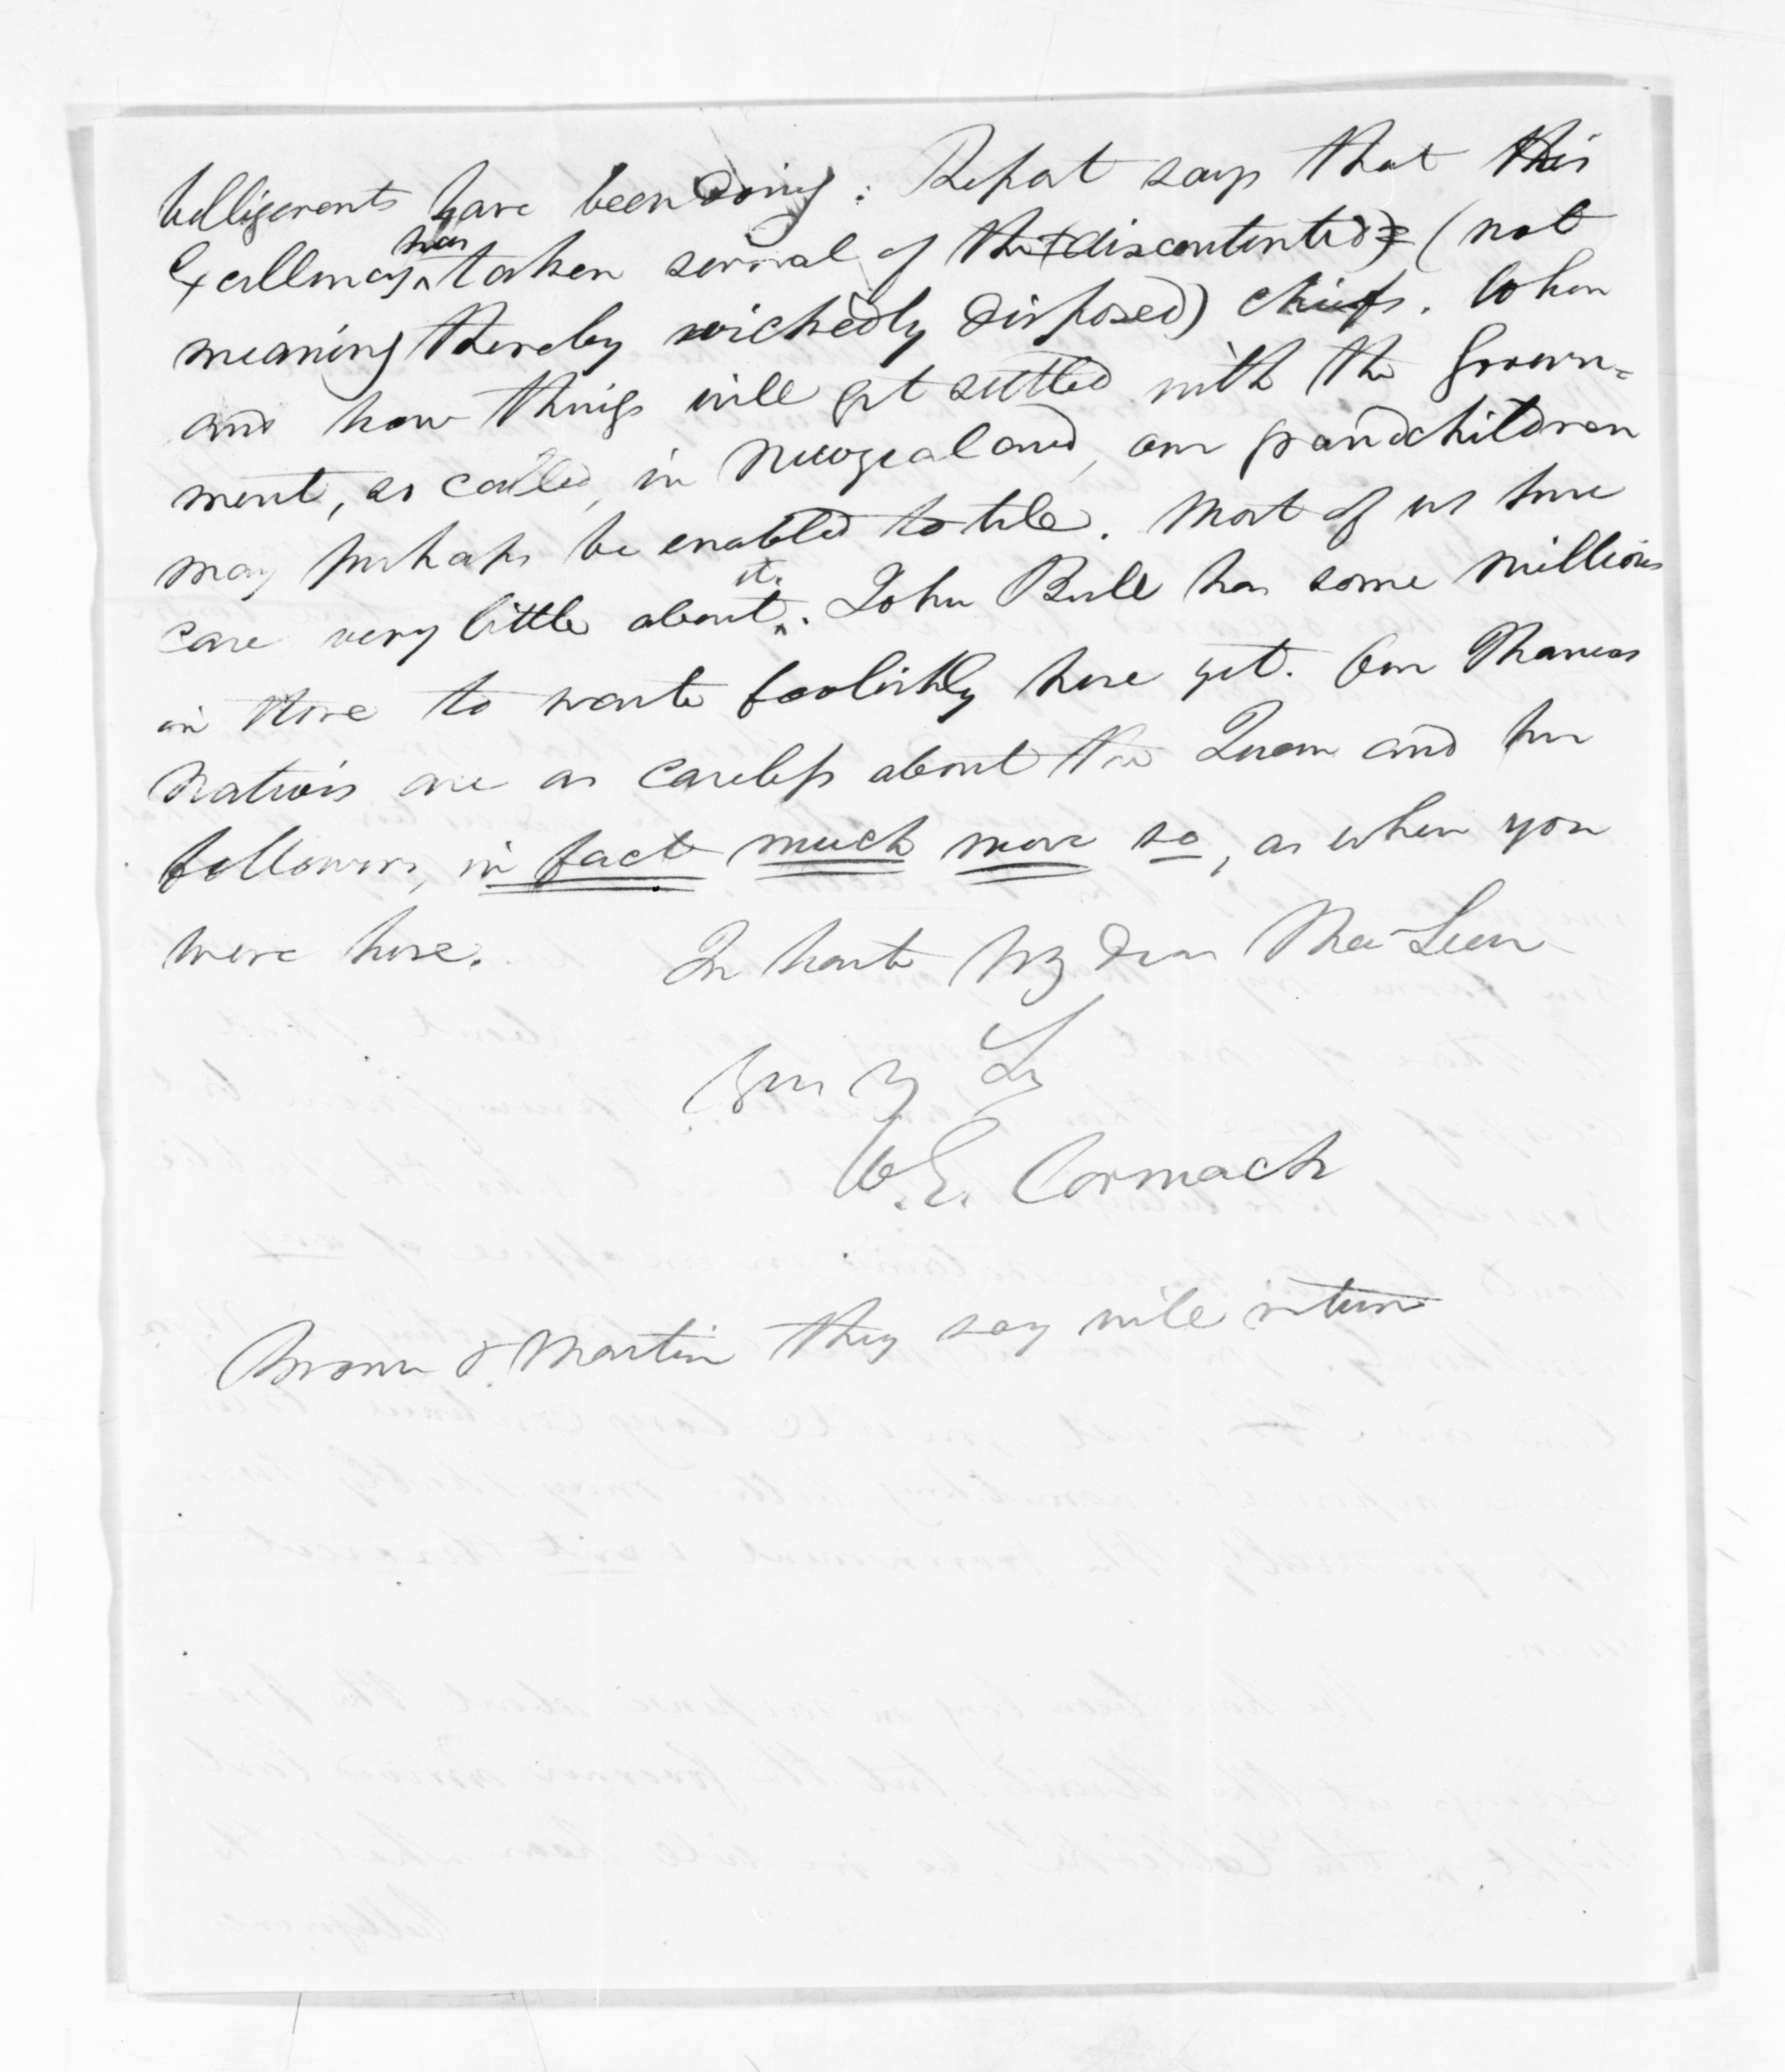 belligerents have been doing: Report says that this
Excellency has taken several of the discontented (not
meaning thereby wickedly disposed) chiefs. When
and how things will get settled with the Govern=
ment, so called, in Newzealand, our grandchildren
may perhaps be enabled to tell. Most of us here
care very little about it. John Bull has some millions
in store to waste foolishly here yet. Our Thames
Natives are as careless about the Queen and her
followers, in fact much more so, as when you
were here. In haste My dear MacLean
W.E. Cormack
Brown & Martin they say will return